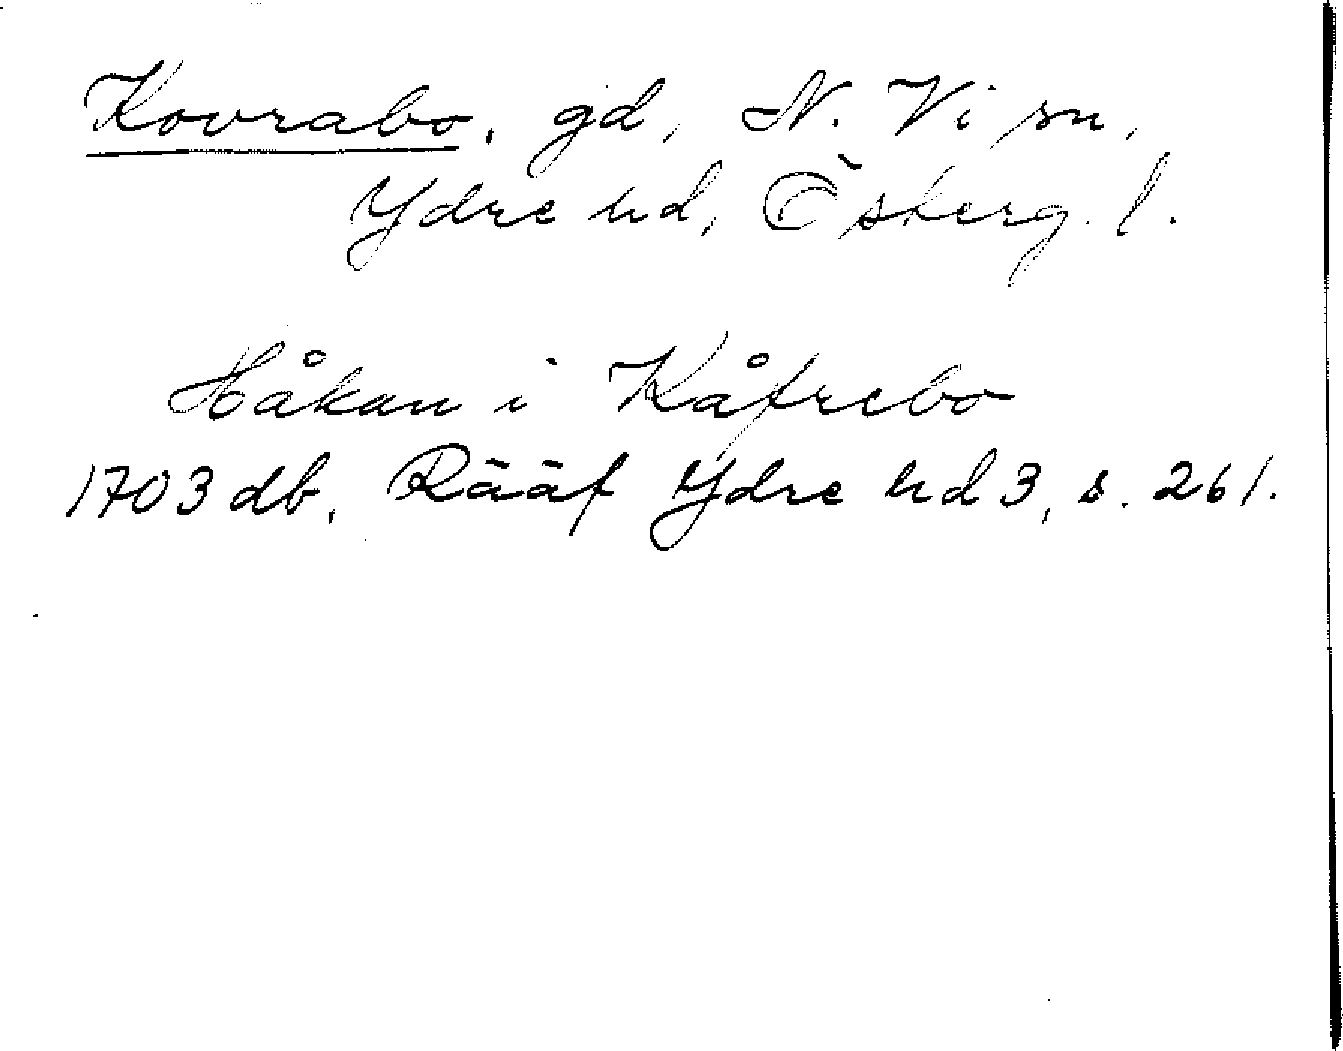 Kovrabo, gd, N. Vi sn,
Ydre hd, Österg. l.
Håkan i Kåfrebo
1703 db, Rääf Ydre hd 3, s. 261.